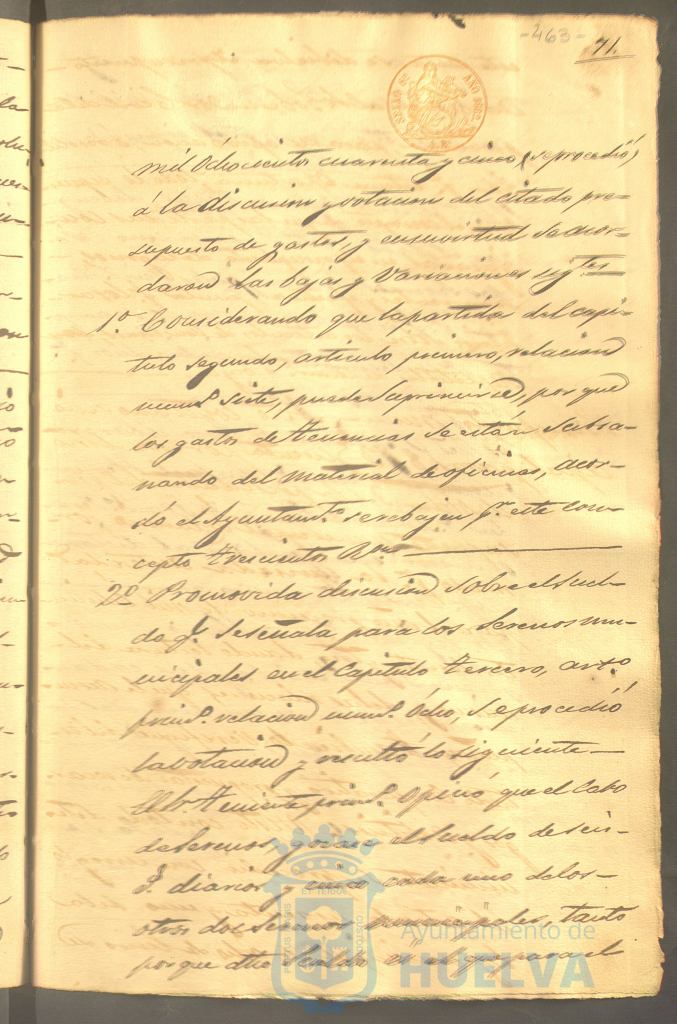 -463-
71.
SELLO 11º AÑO 1862
mil Ochocientos cuarenta y cinco, se procedió
á la discusion y votacion del citado pre=
supuesto de gastos, y en su virtud se acor=
daron las bajas y Variaciones sigtes
1º Considerando que la partida del capi=
tulo segundo, articulo primero, relacion
numº siete, puede Suprimirse, por que
los gastos de tenencias se están Subsa=
nando del material de oficinas, acor=
dó el Ayuntamto se rebajen pr este con=
cepto trescientos Rs
2º Promovida discusion sobre el suel=
do qe Se señala para los Serenos mu=
nicipales en el Capitulo tercero, arto
primo relacion numo Ocho, se procedió
la votacion y resultó lo siguiente=
El Sr teniente primo Opinó que el Cabo
de Serenos gozase el sueldo de seis=
rs diarios y cinco cada uno de los=
otros dos Serenos municipales, tanto
por que dho sueldo es el que para el
Ayuntamiento de
HUELVA